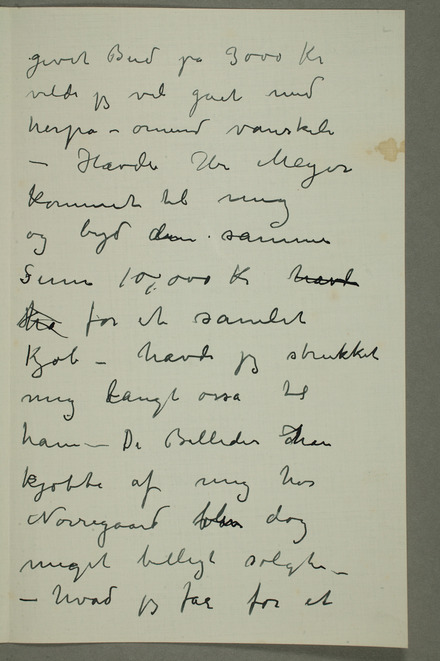 givet Bud på 3000 Kr
vilde jeg vel gået med
herpå – omend vanskeli
– Havde Hr Meyer
kommet til mig
og byd den samme
Sum 10,000 Kr havde
for et samlet
Kjøb – havde jeg strukket
mig langt også til
ham – De Billeder han
kjøbte af mig hos
Nørregaard blev dog
meget billigt solgte –
– hvad jeg får for et